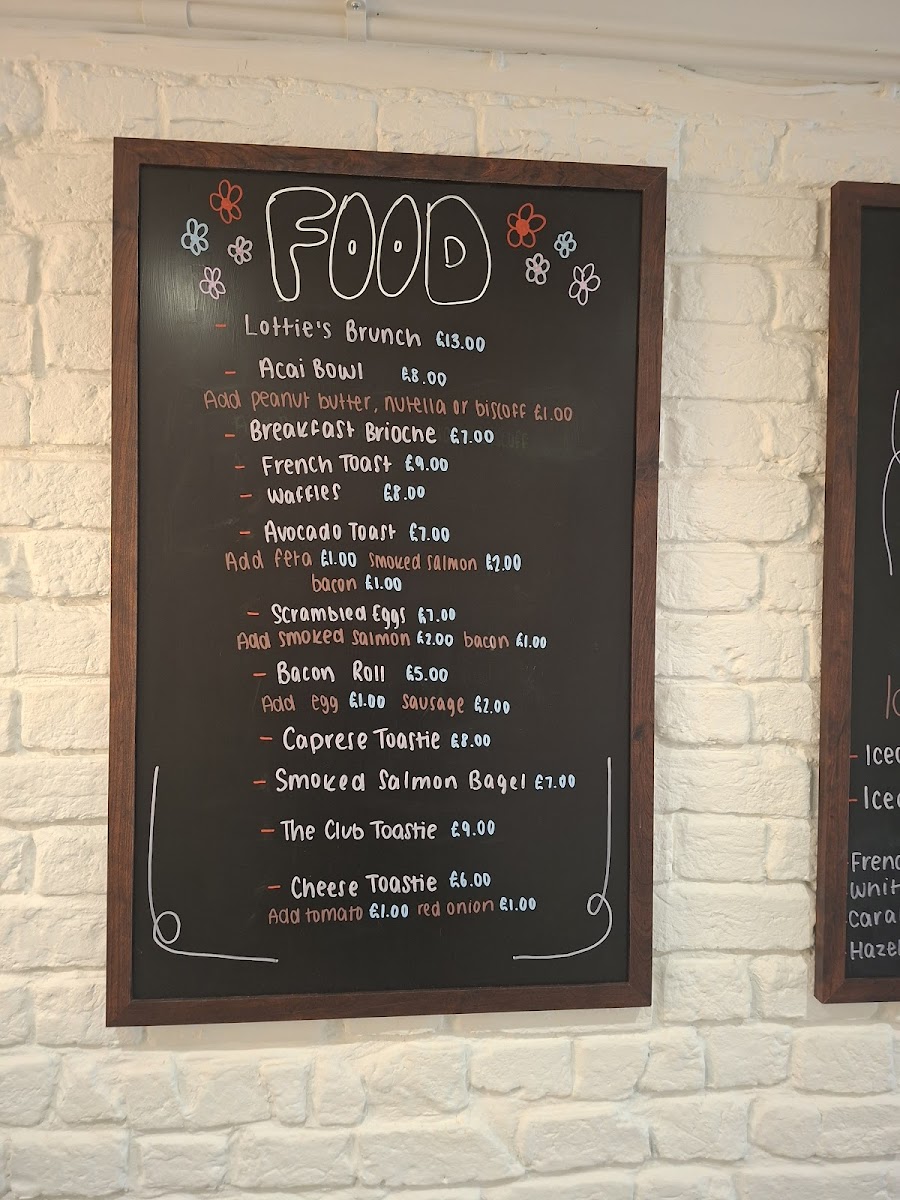 FOOD
- Lottie's Brunch £13.00
- Acai Bowl £8.00
Add peanut butter, nutella or biscoff £1.00
- Breakfast Brioche £7.00
- French Toast £9.00
- Waffles £8.00
- Avocado Toast £7.00
Add feta £1.00 smoked salmon £2.00
bacon £1.00
- Scrambled Eggs £7.00
Add smoked salmon £2.00 bacon £1.00
- Bacon Roll £5.00
Add egg £1.00 sausage £2.00
- Caprese Toastie £8.00
- Smoked Salmon Bagel £7.00
- The Club Toastie £9.00
- Cheese Toastie £6.00
Add tomato £1.00 red onion £1.00